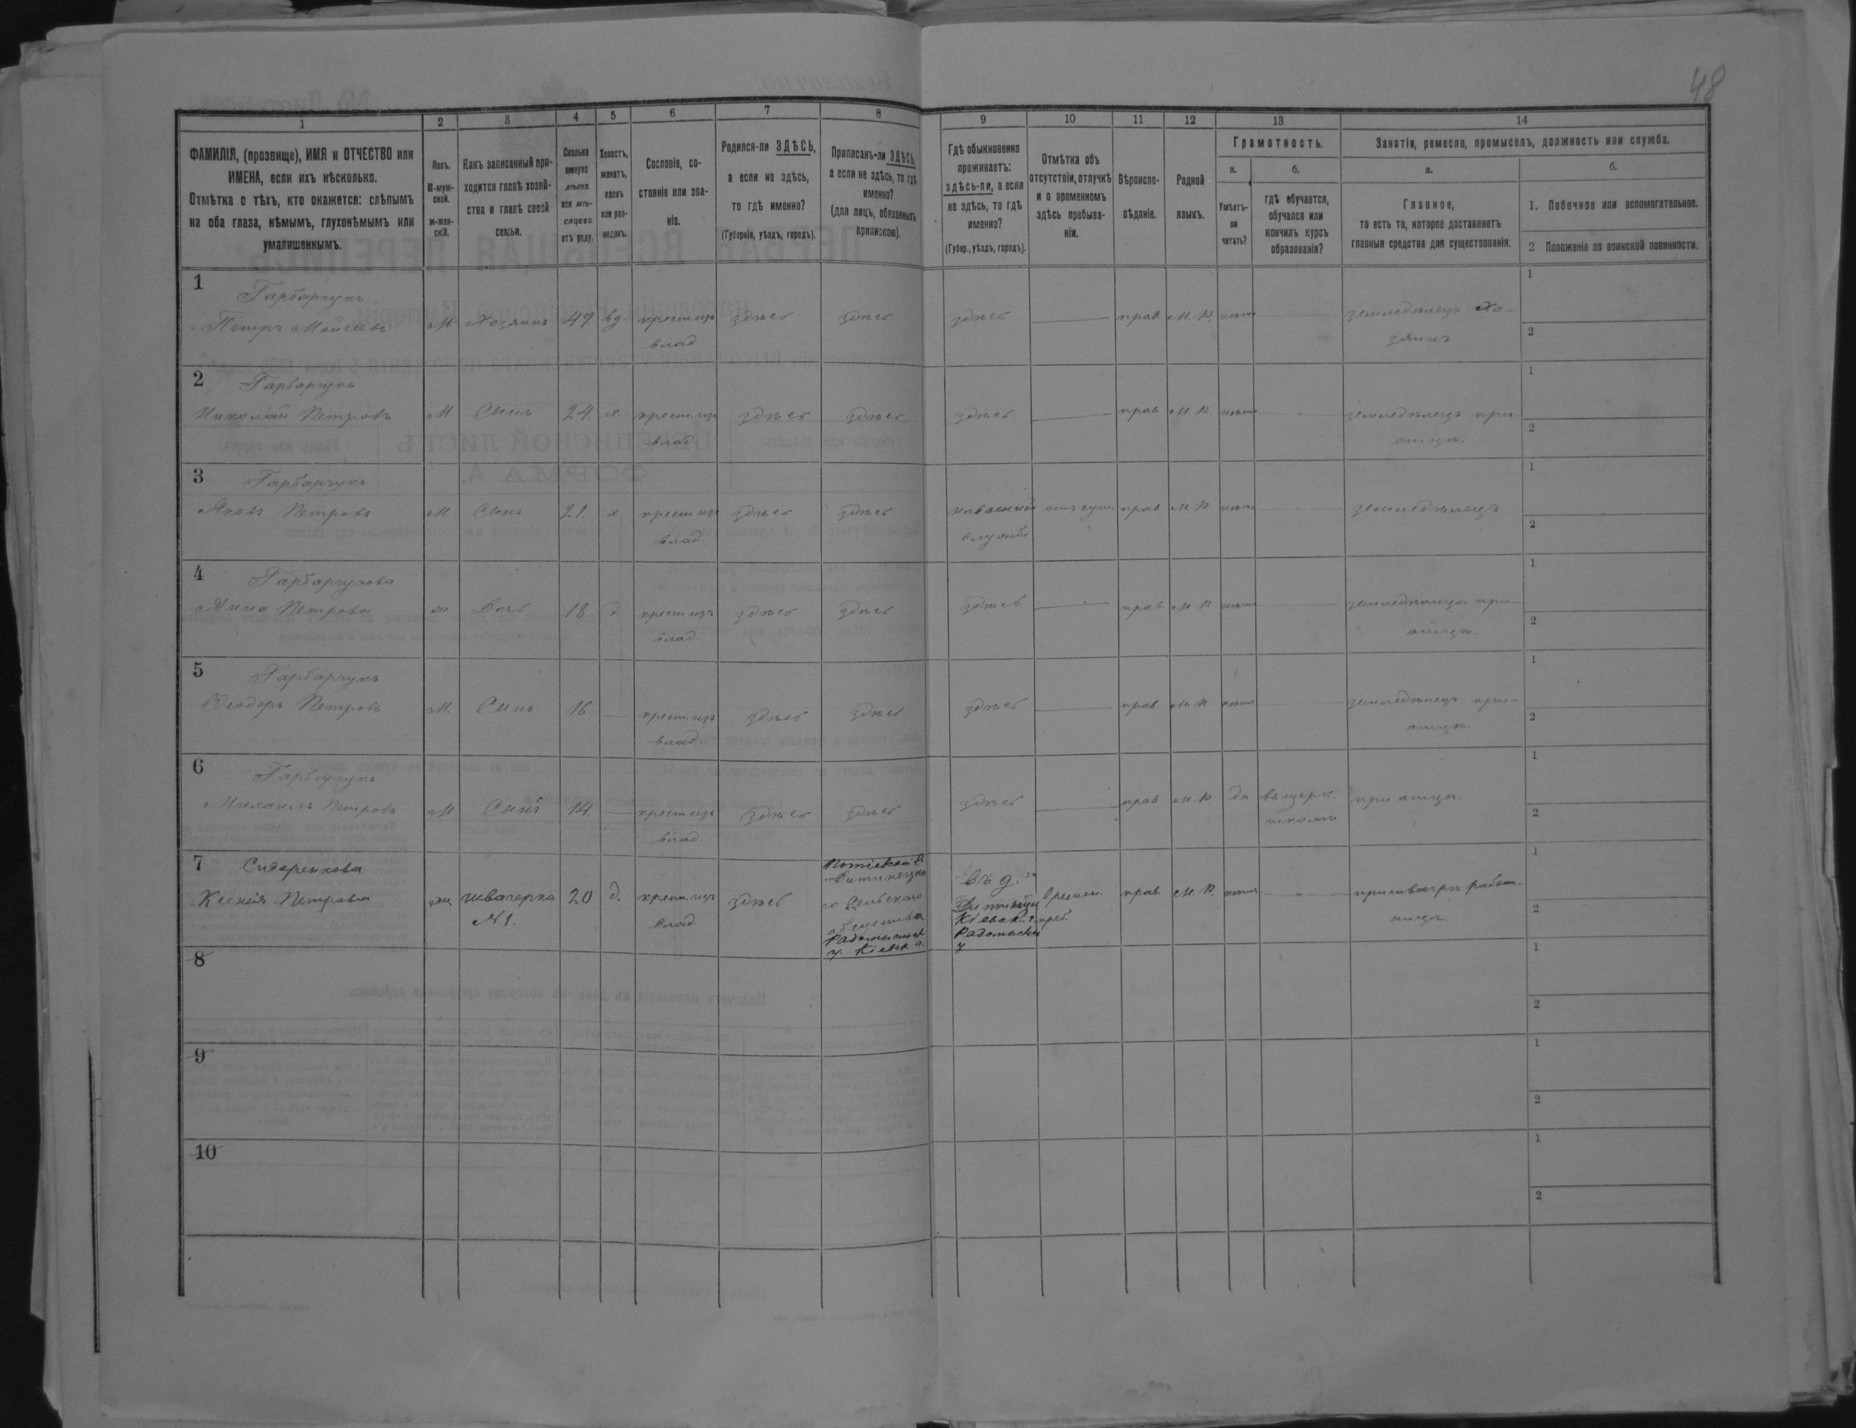 48
1
2
3
4
5
6
7
8
9
10
11
12
13
14
ФАМИЛІЯ, (прозвище), ИМЯ и ОТЧЕСТВО или
ИМЕНА, если ихъ нѣсколько.
Отмѣтка о тѣхъ, кто окажется: слѣпымъ
на оба глаза, нѣмымъ, глухонѣмымъ или
умалишеннымъ.
Полъ.
М-муж-
ской.
ж-жен-
скій.
Какъ записанный при-
ходится главѣ хозяй-
ства и главѣ своей
семьи.
Сколько
минуло
лѣтъ
или мѣ-
сяцевъ
отъ роду.
Холостъ,
женатъ,
вдовъ
или раз-
веденъ.
Сословіе, со-
стояніе или зва-
ніе.
Родился-ли ЗДѢСЬ,
а если не здѣсь,
то гдѣ именно?
(Губернія, уѣздъ, городъ).
Приписанъ-ли ЗДѢСЬ,
а если не здѣсь, то гдѣ
именно?
(для лицъ, обязанныхъ
припискою).
Гдѣ обыкновенно
проживаетъ:
здѣсь-ли, а если
не здѣсь, то гдѣ
именно?
(Губер., уѣздъ, городъ).
Отмѣтка объ
отсутствіи, отлучкѣ
и о временномъ
здѣсь пребыва-
ніи.
Вѣроиспо-
вѣданіе.
Родной
языкъ.
Грамотность.
а.
Умѣетъ-
ли
читать?
б.
гдѣ обучается,
обучался или
кончилъ курсъ
образованія?
Занятіе, ремесло, промыселъ, должность или служба.
а.
Главное,
то есть то, которое доставляетъ
главныя средства для существованія.
б.
1. Побочное или вспомогательное.
2 Положеніе по воинской повинности.
1
Гарбарчукъ
Петръ Мойсеевъ М Хозяинъ 47 вд. крест. изъ здѣсь здѣсь здѣсь прав. М. Р. нѣтъ земледѣлецъ Хо-
влад. зяинъ
1
2
2
Гарбарчукъ
Николай Петровъ М. Сынъ 24 х. крест. изъ здѣсь здѣсь здѣсь прав. М. Р. нѣтъ земледѣлецъ при
влад. отцѣ.
1
2
3
Гарбарчукъ
Яковъ Петровъ М. Сынъ 21. х крест. изъ здѣсь здѣсь отсут. прав. М. Р. нѣтъ земледѣлецъ
влад. службѣ
1
2
4
Гарбарчукова
Анна Петрова ж Дочь 18 д. крест. изъ здѣсь здѣсь здѣсь прав. М. Р. нѣтъ при
влад. отцѣ.
1
2
5
Гарбарчукъ
Ѳеодоръ Петровъ М. Сынъ 16 крест. изъ здѣсь здѣсь здѣсь прав. М. Р. нѣтъ земледѣлецъ при
влад. отцѣ.
1
2
6
Гарбарчукъ
Михаилъ Петровъ М Сынъ 14. крест. изъ здѣсь здѣсь здѣсь прав. М. Р. да въ церк. при отцѣ.
влад. школѣ
1
2
7
Сидоренкова
Ксенія Петрова жен швагерка 20 д. крест. изъ здѣсь прав. М. Р. нѣтъ
№1. влад.
сельскаго
общества
Радомысльск.
у. Кіевск. г.
въ д.
Кіевск. г.
Радомысльск
у
времен.
преб.
1
2
8
1
2
9
1
2
10
1
2